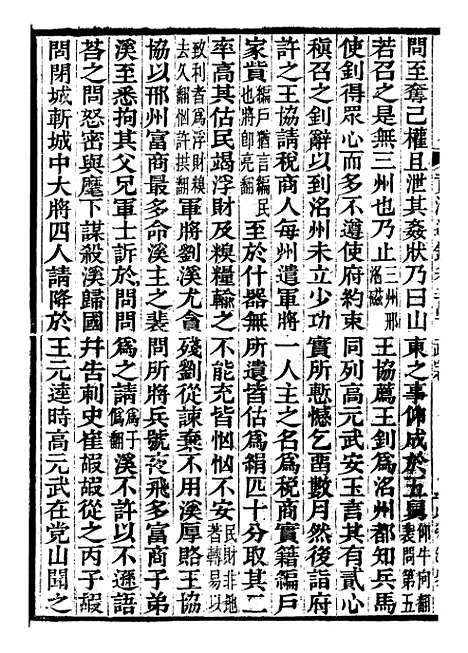 問至奪己權且泄其姦狀乃曰山東之事仰成於五舅仰牛向翻裴問第五
若召之是無三州也乃止三州邢洺磁王協薦王釗爲洺州都知兵馬
使釗得眾心而多不遵使府約束同列高元武安玉言其有貳心
稹召之釗辭以到洺州未立少功實所慙憾乞畱數月然後詣府
許之王協請稅商人每州遣軍將一人主之名爲稅商實籍編戶
家貲編戶猶言編民也將卽亮翻至於什器無所遺皆估爲絹匹十分取其二
率高其估民竭浮財及糗糧輸之不能充皆忷忷不安民財非地著轉易以
致利者爲浮財糗去久翻忷許拱翻軍將劉溪尤貪殘劉從諫棄不用溪厚賂王協
協以邢州富商最多命溪主之裴問所將兵號夜飛多富商子弟
溪至悉拘其父兄軍士訴於問問爲之請爲于僞翻溪不許以不遜語
荅之問怒密與麾下謀殺溪歸國幷告刺史崔嘏嘏從之丙子嘏
問閉城斬城中大將四人請降於王元逵時高元武在党山聞之